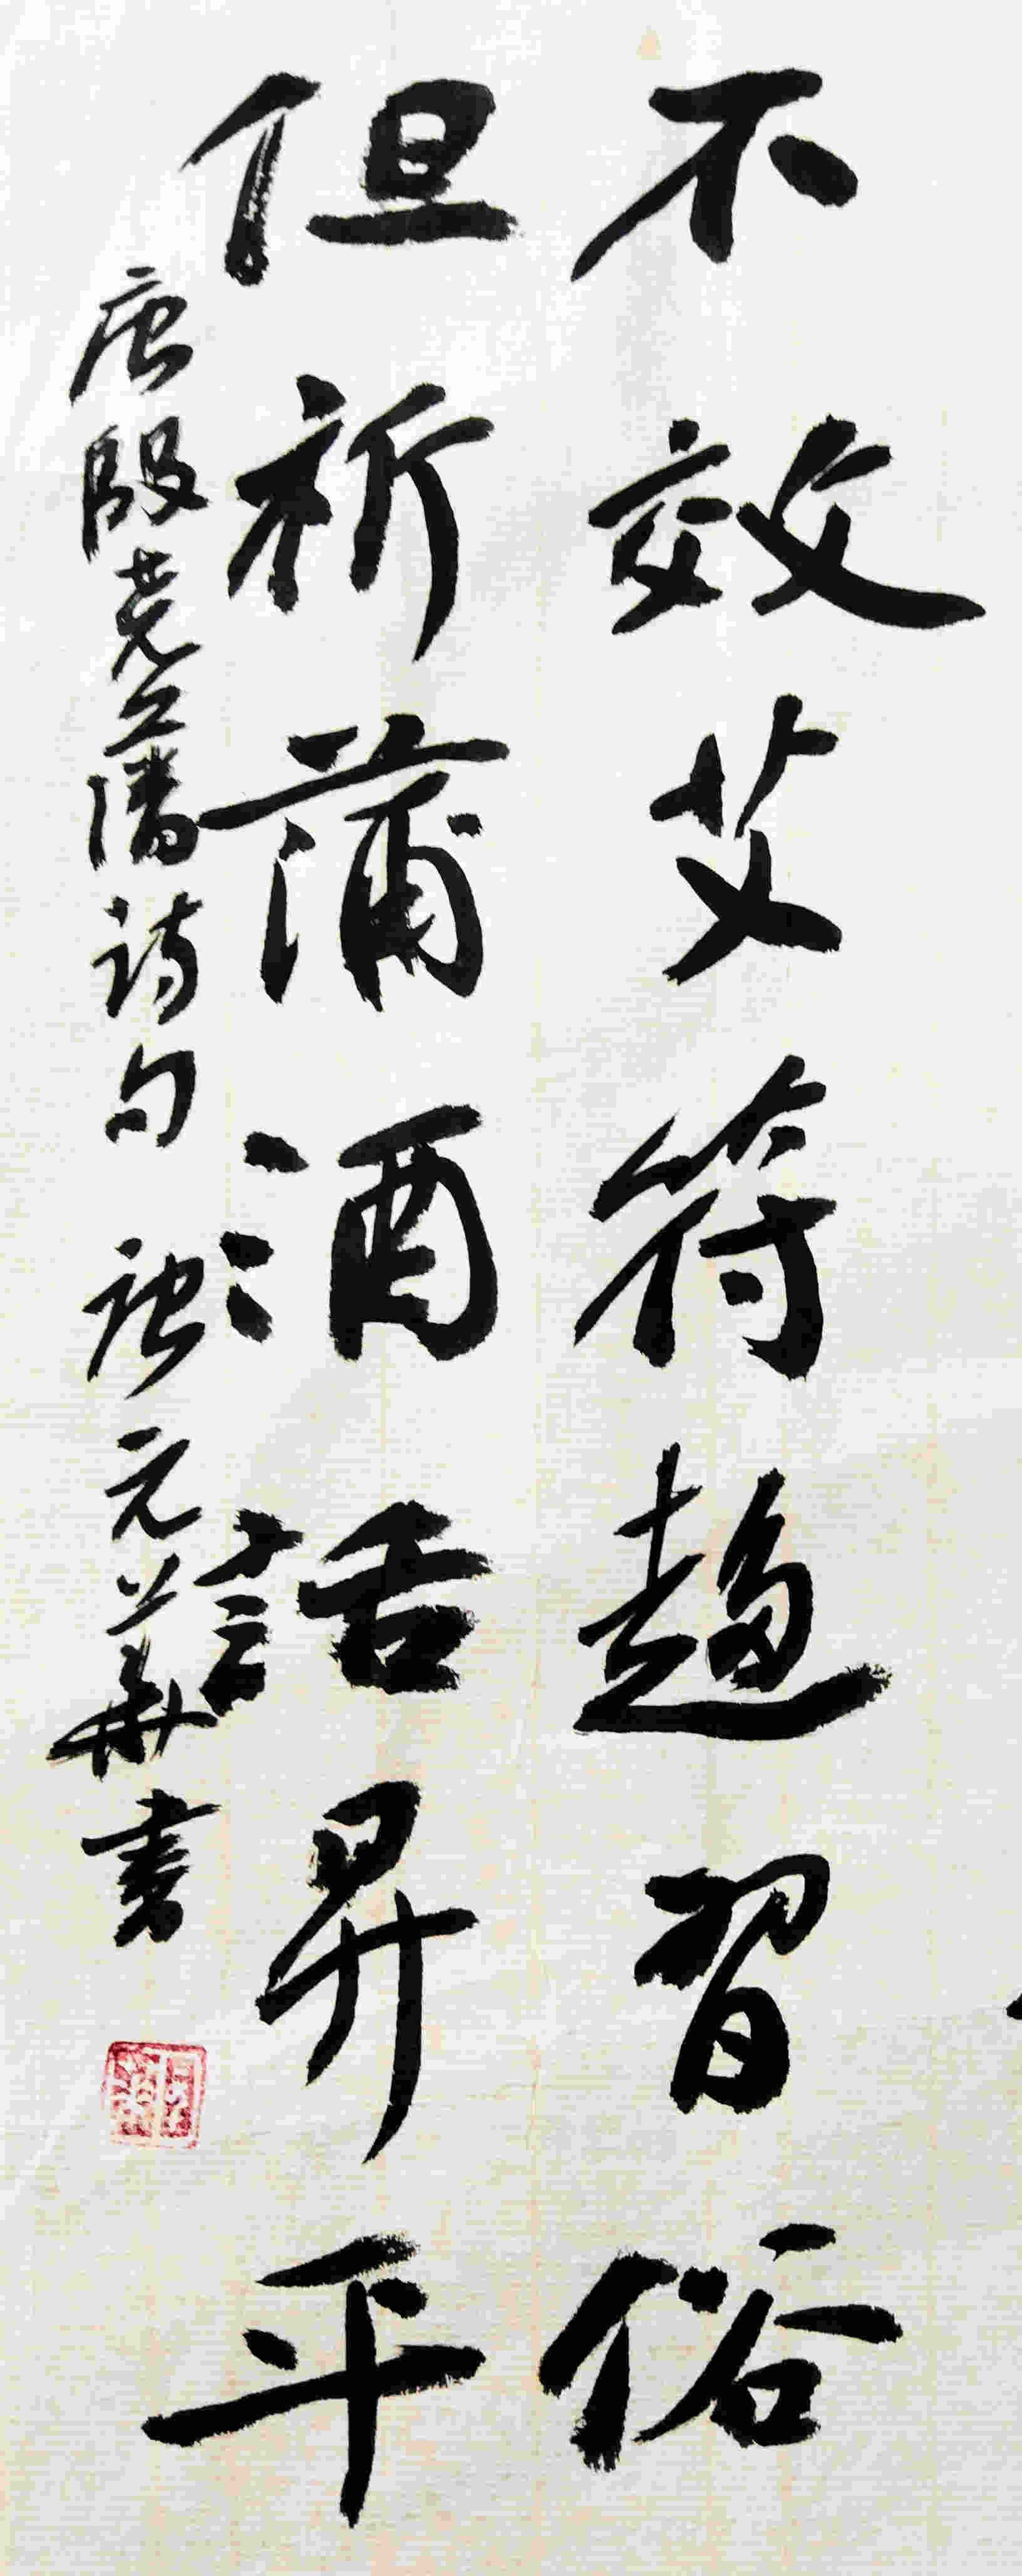 不效艾符趋習俗
但祈蒲酒話昇平
唐殷尧藩诗句 元華書